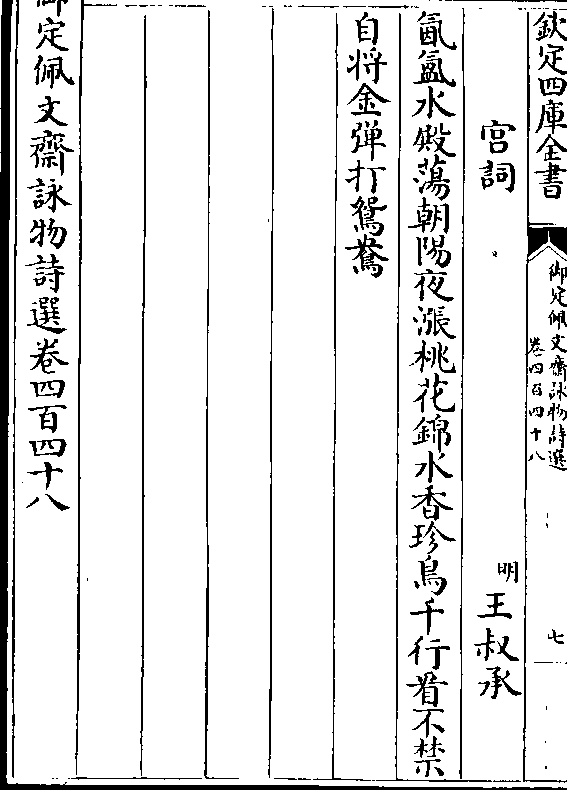 欽定四庫全書
御定佩文齋詠物詩選
卷四百四十八
七
宫詞
明
王叔承
氤氲水殿蕩朝陽夜漲桃花錦水香珍鳥千行看不禁
自将金弹打鴛鴦
御定佩文齋詠物詩選卷四百四十八